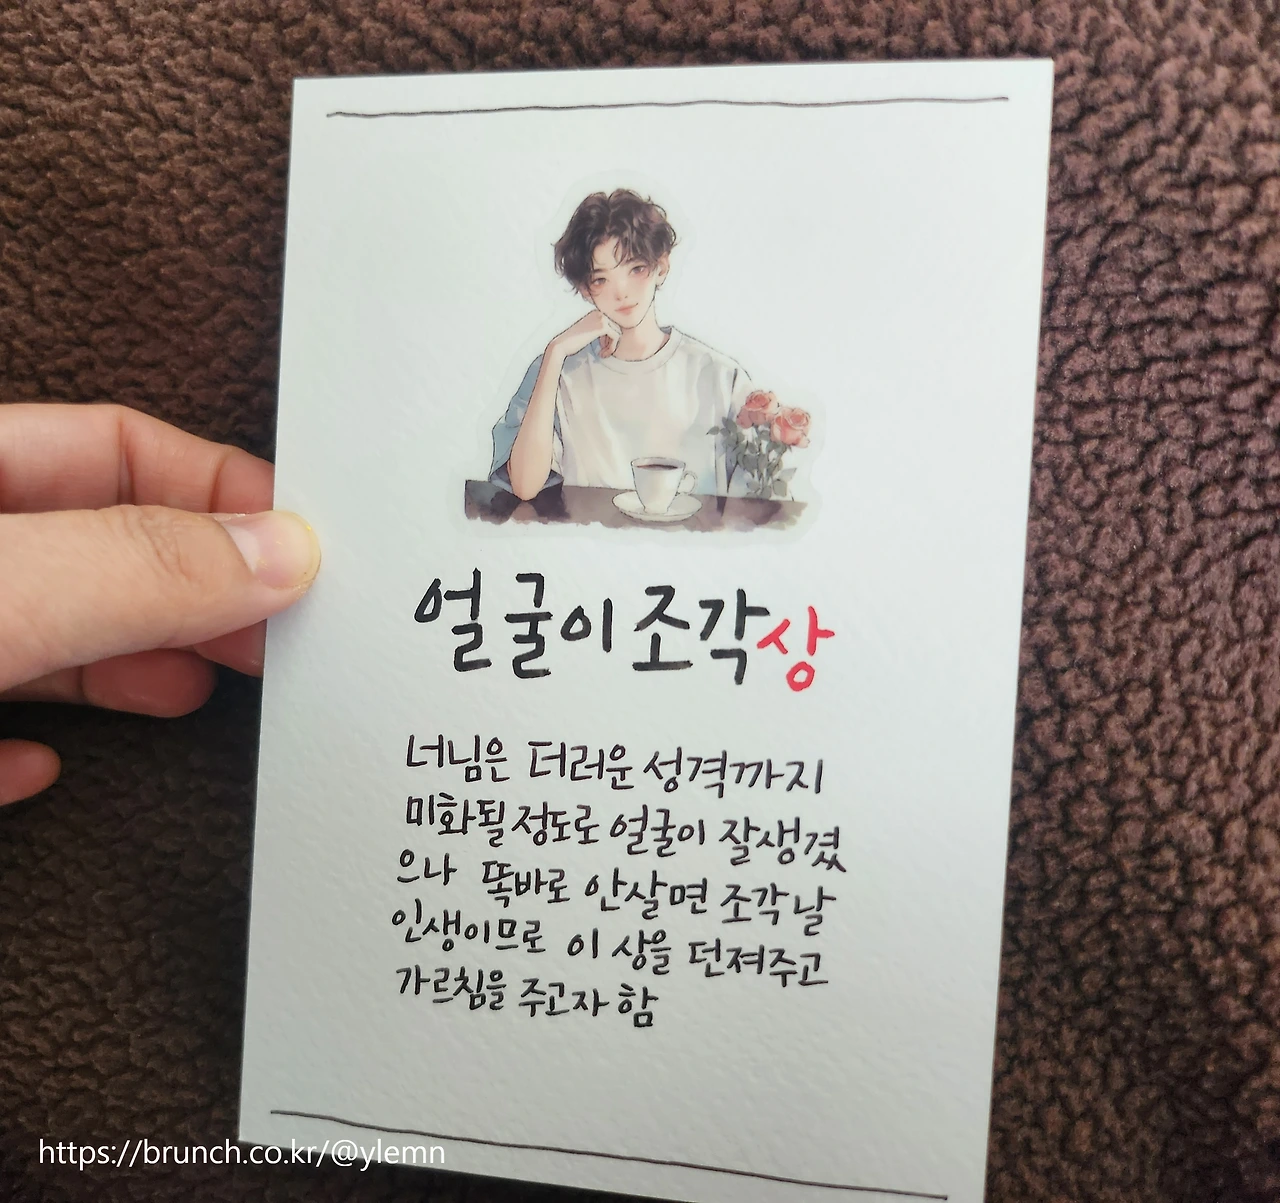 얼굴이 조각상
너님은 더러운 성격까지
미화될 정도로 얼굴이 잘생겼
으나 똑바로 안살면 조각날
인생이므로 이 상을 던져주고
가르침을 주고자 함
https://brunch.co.kr/@ylemn